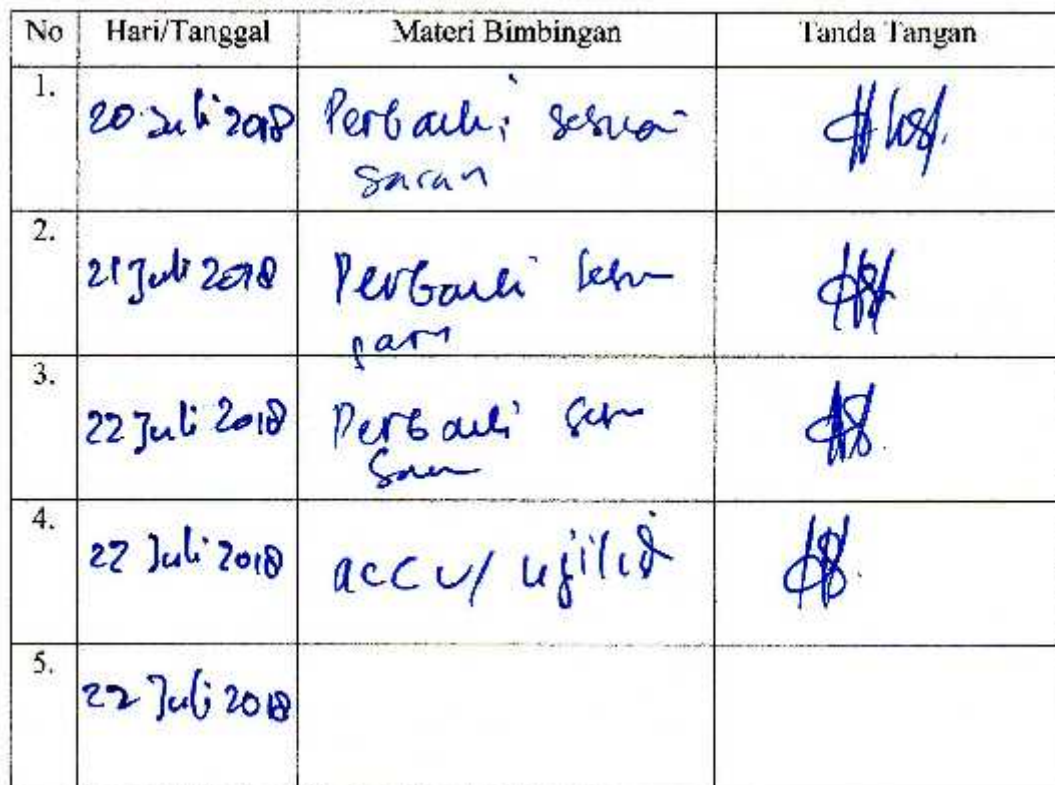 No Hari/Tanggal Materi Bimbingan Tanda Tangan
1. 20 Juli 2018 Perbaiki sesuai
saran
2. 21 Juli 2018 Perbaiki
3. 22 Juli 2018 Perbaiki
4. 22 Juli 2018 acc
5. 22 Juli 2018